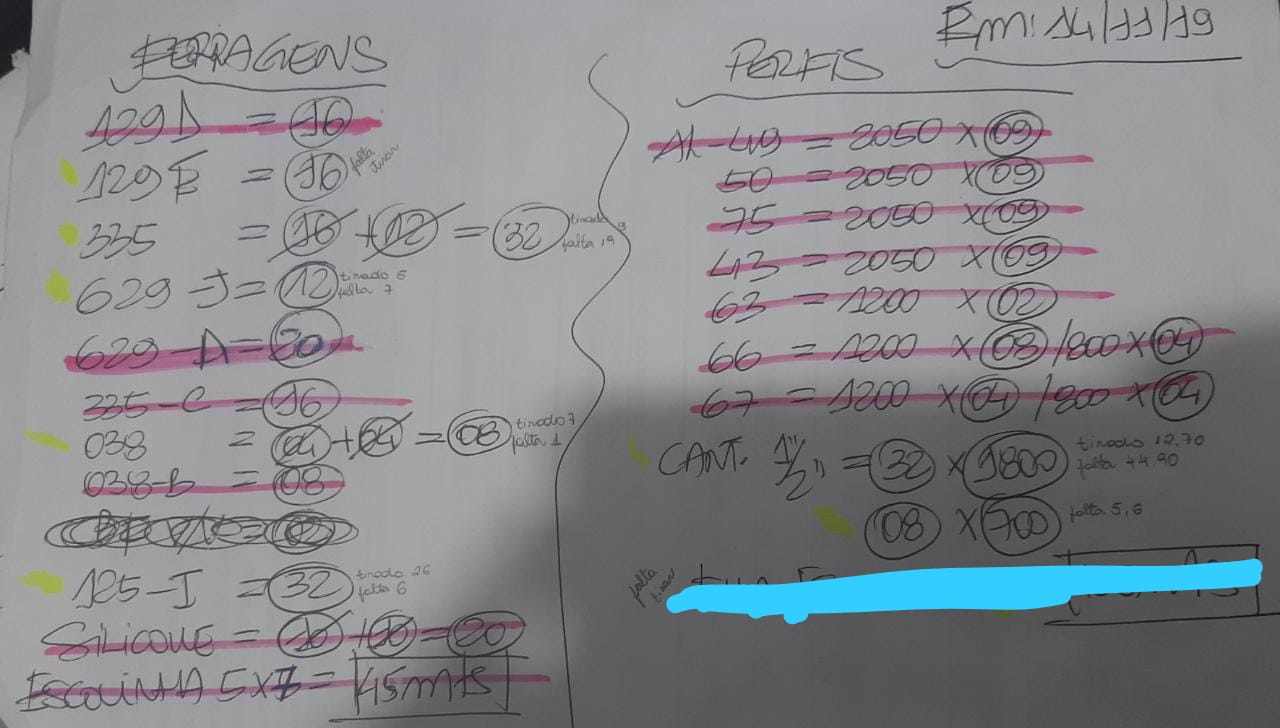 FERRAGENS
129D = 16
129E = 16 falta tirar
335 = 16 + 12 = 32 tirado 13
falta 19
629-J = 12 tirado 5
falta 7
629-A = 20
335-C = 16
038 = 04 + 04 = 08 tirado 7
falta 1
038-B = 08
125-I = 32 tirado 26
falta 6
SILICONE = 10 + 10 = 20
ESCOLINHA 5X7 = 45mts
Em: 14/11/19
PERFIS
Al-49 = 2050 X 09
50 = 2050 X 09
75 = 2050 X 09
43 = 2050 X 09
63 = 1200 X 02
66 = 1200 X 08 / 800 X 04
67 = 1200 X 04 / 800 X 04
CANT. 1/2" = 32 X 1800 tirado 12,70
falta 44.90
08 X 700 falta 5,6
falta tirar